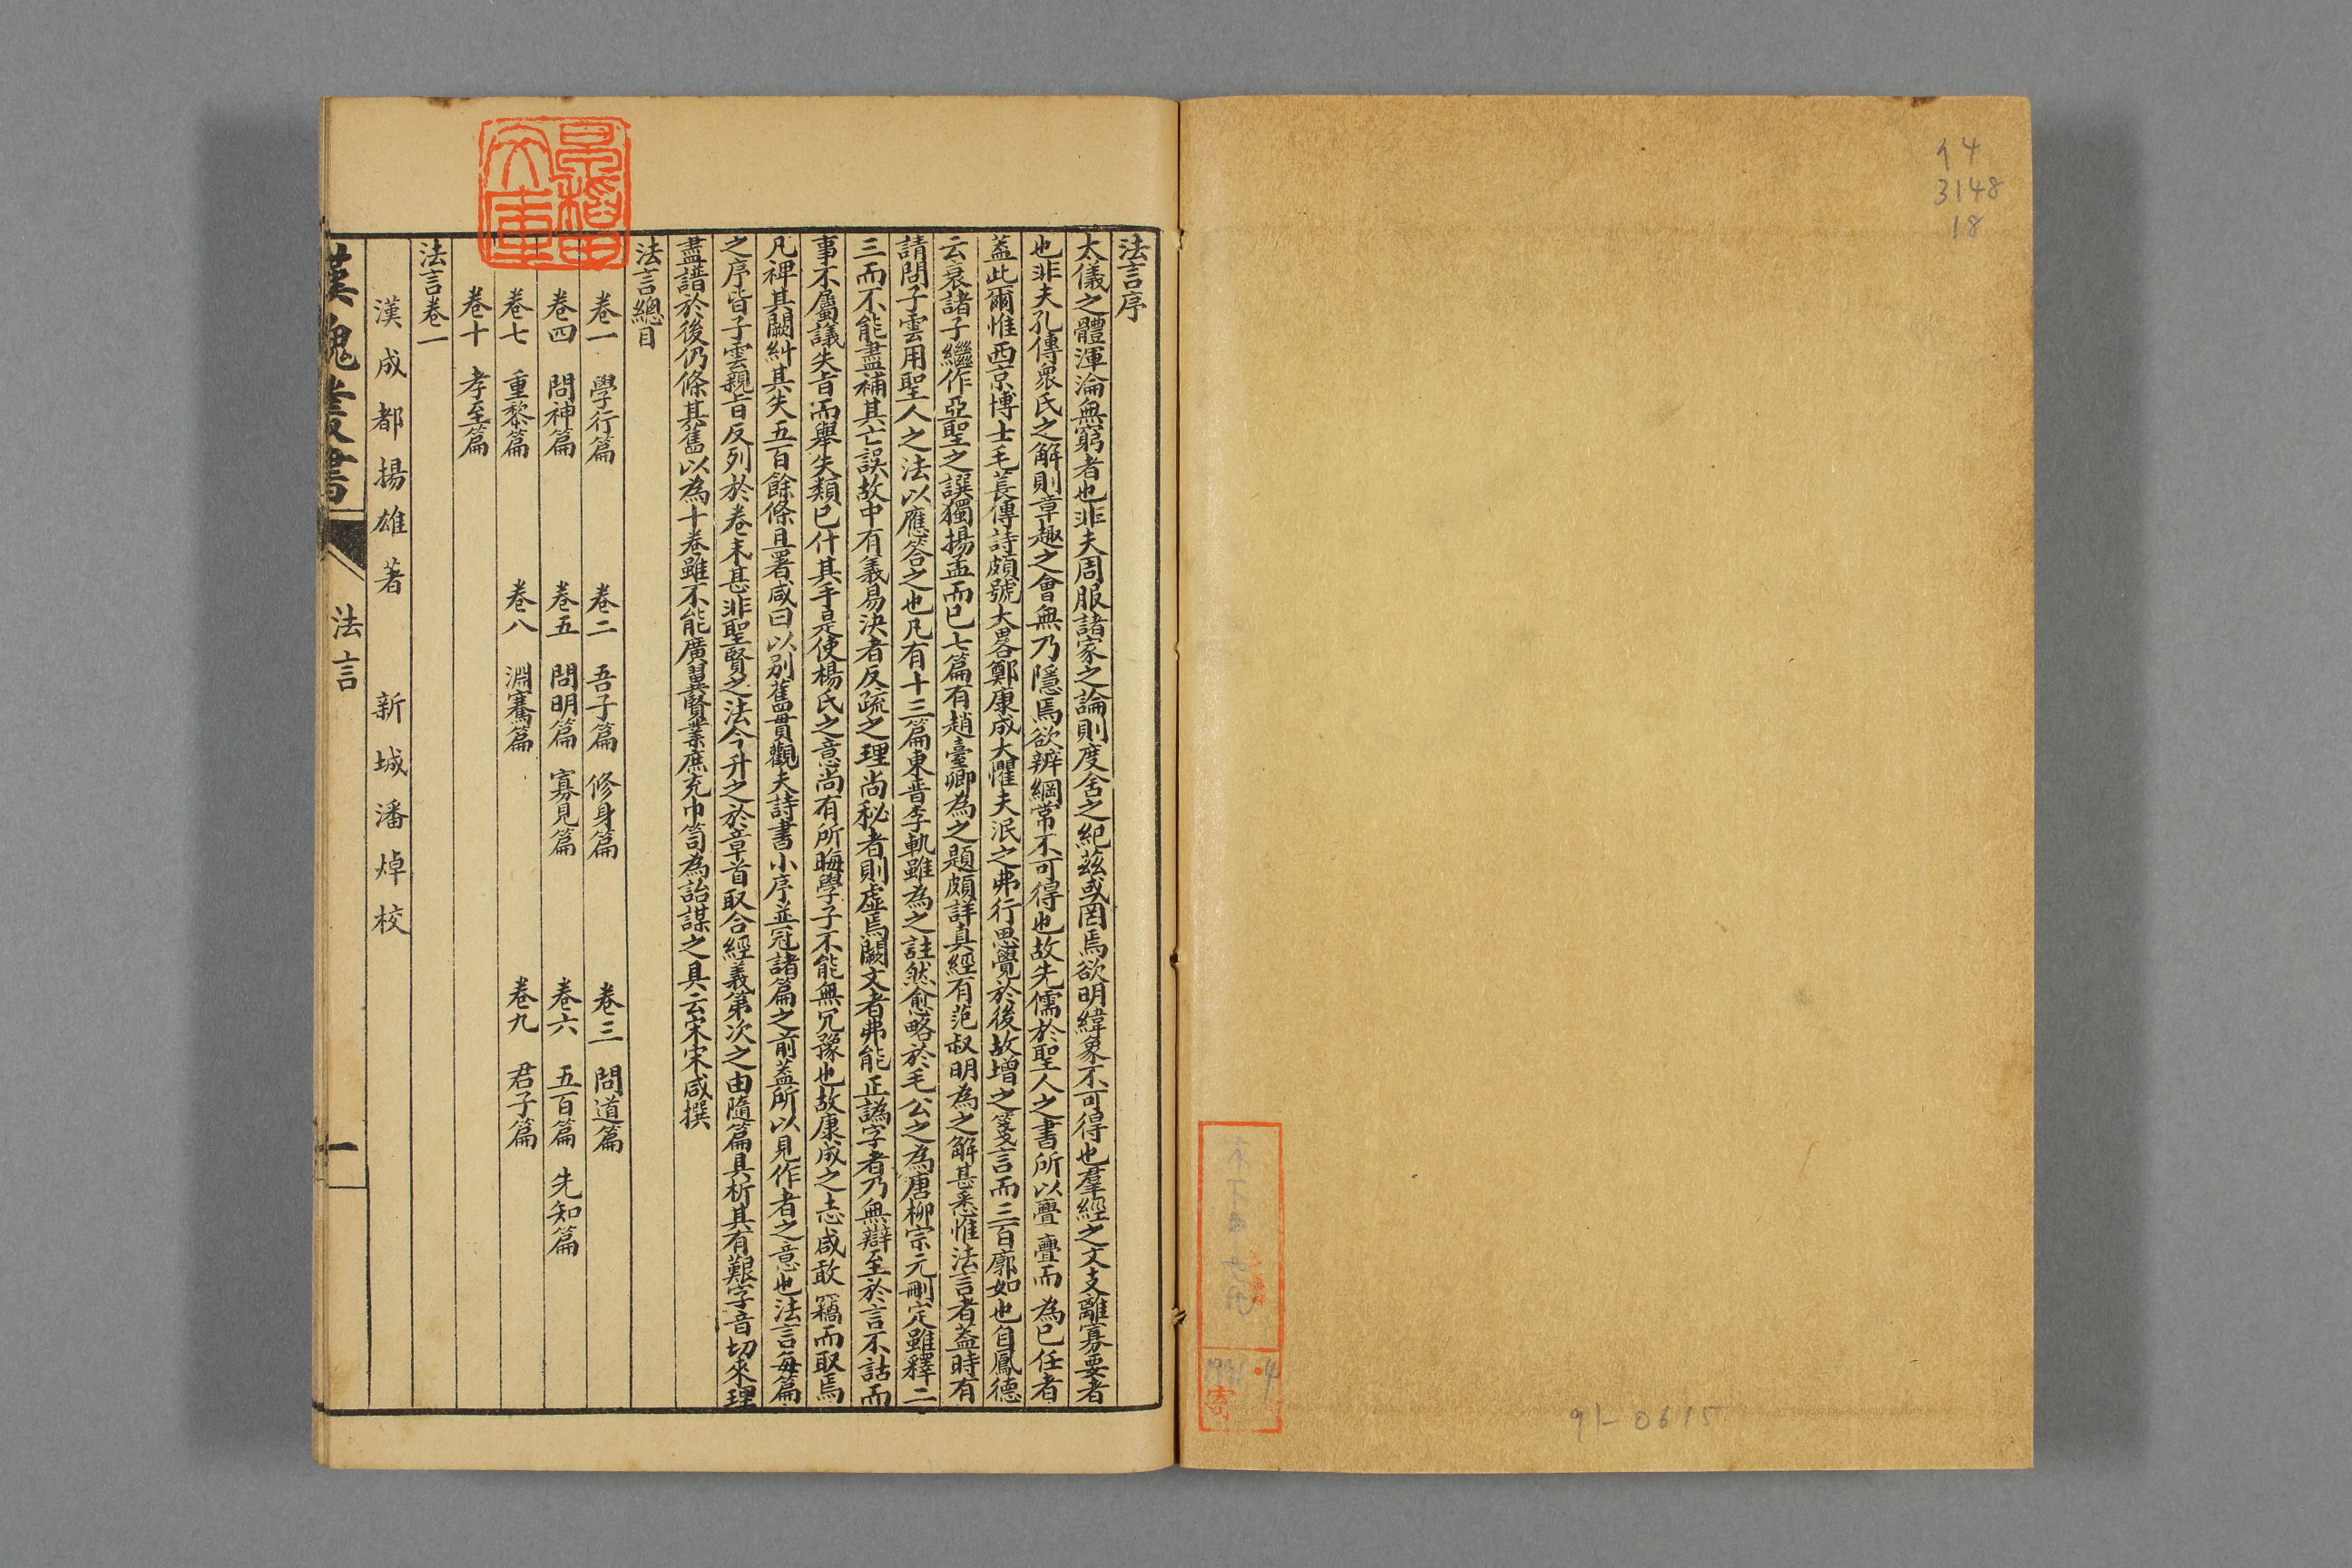 法言序
太儀之體渾淪無窮者也非夫周服諸家之論則度舍之紀茲或罔焉欲明緯象不可得也羣經之文支離寡要者
也非夫孔傳衆氏之解則章趣之會無乃隱焉欲辨綱常不可得也故先儒於聖人之書所以亹亹而為已任者
蓋此爾惟西京博士毛萇傳詩頗號大畧鄭康成大懼夫泯之弗行思覺於後故增之箋言而三百廓如也自鳳德
云衰諸子繼作亞聖之譔獨揚孟而已七篇有趙臺卿為之題頗詳真經有范叔明為之解甚悉惟法言者蓋時有
請問子雲用聖人之法以應答之也凡有十三篇東晋李軌雖為之註然愈略於毛公之為唐柳宗元刪定雖釋二
三而不能盡補其亡誤故中有義易決者反疏之理尚秘者則虛焉闕文者弗能正譌字者乃無辯至於言不詁而
事不屬議失旨而舉失類已什其手是使楊氏之意尚有所晦學子不能無冗豫也故康成之志咸敢竊而取焉
凡裨其闕糾其失五百餘條且署咸曰以别舊貫觀夫詩書小序並冠諸篇之前蓋所以見作者之意也法言每篇
之序皆子雲親旨反列於卷末甚非聖賢之法今升之於章首取合經義第次之由隨篇具析其有艱字音切來理
盡譜於後仍條其舊以為十卷雖不能廣翼賢業庶充巾笥為詒謀之具云宋宋咸撰
法言總目
卷一 學行篇 卷二 吾子篇 修身篇 卷三 問道篇
卷四 問神篇 卷五 問明篇 寡見篇 卷六 五百篇 先知篇
卷七 重黎篇 卷八 淵騫篇 卷九 君子篇
卷十 孝至篇
法言卷一
漢成都揚雄著 新城潘焯校
漢魏叢書 法言 一
文庫
94
3148
18
91-0615